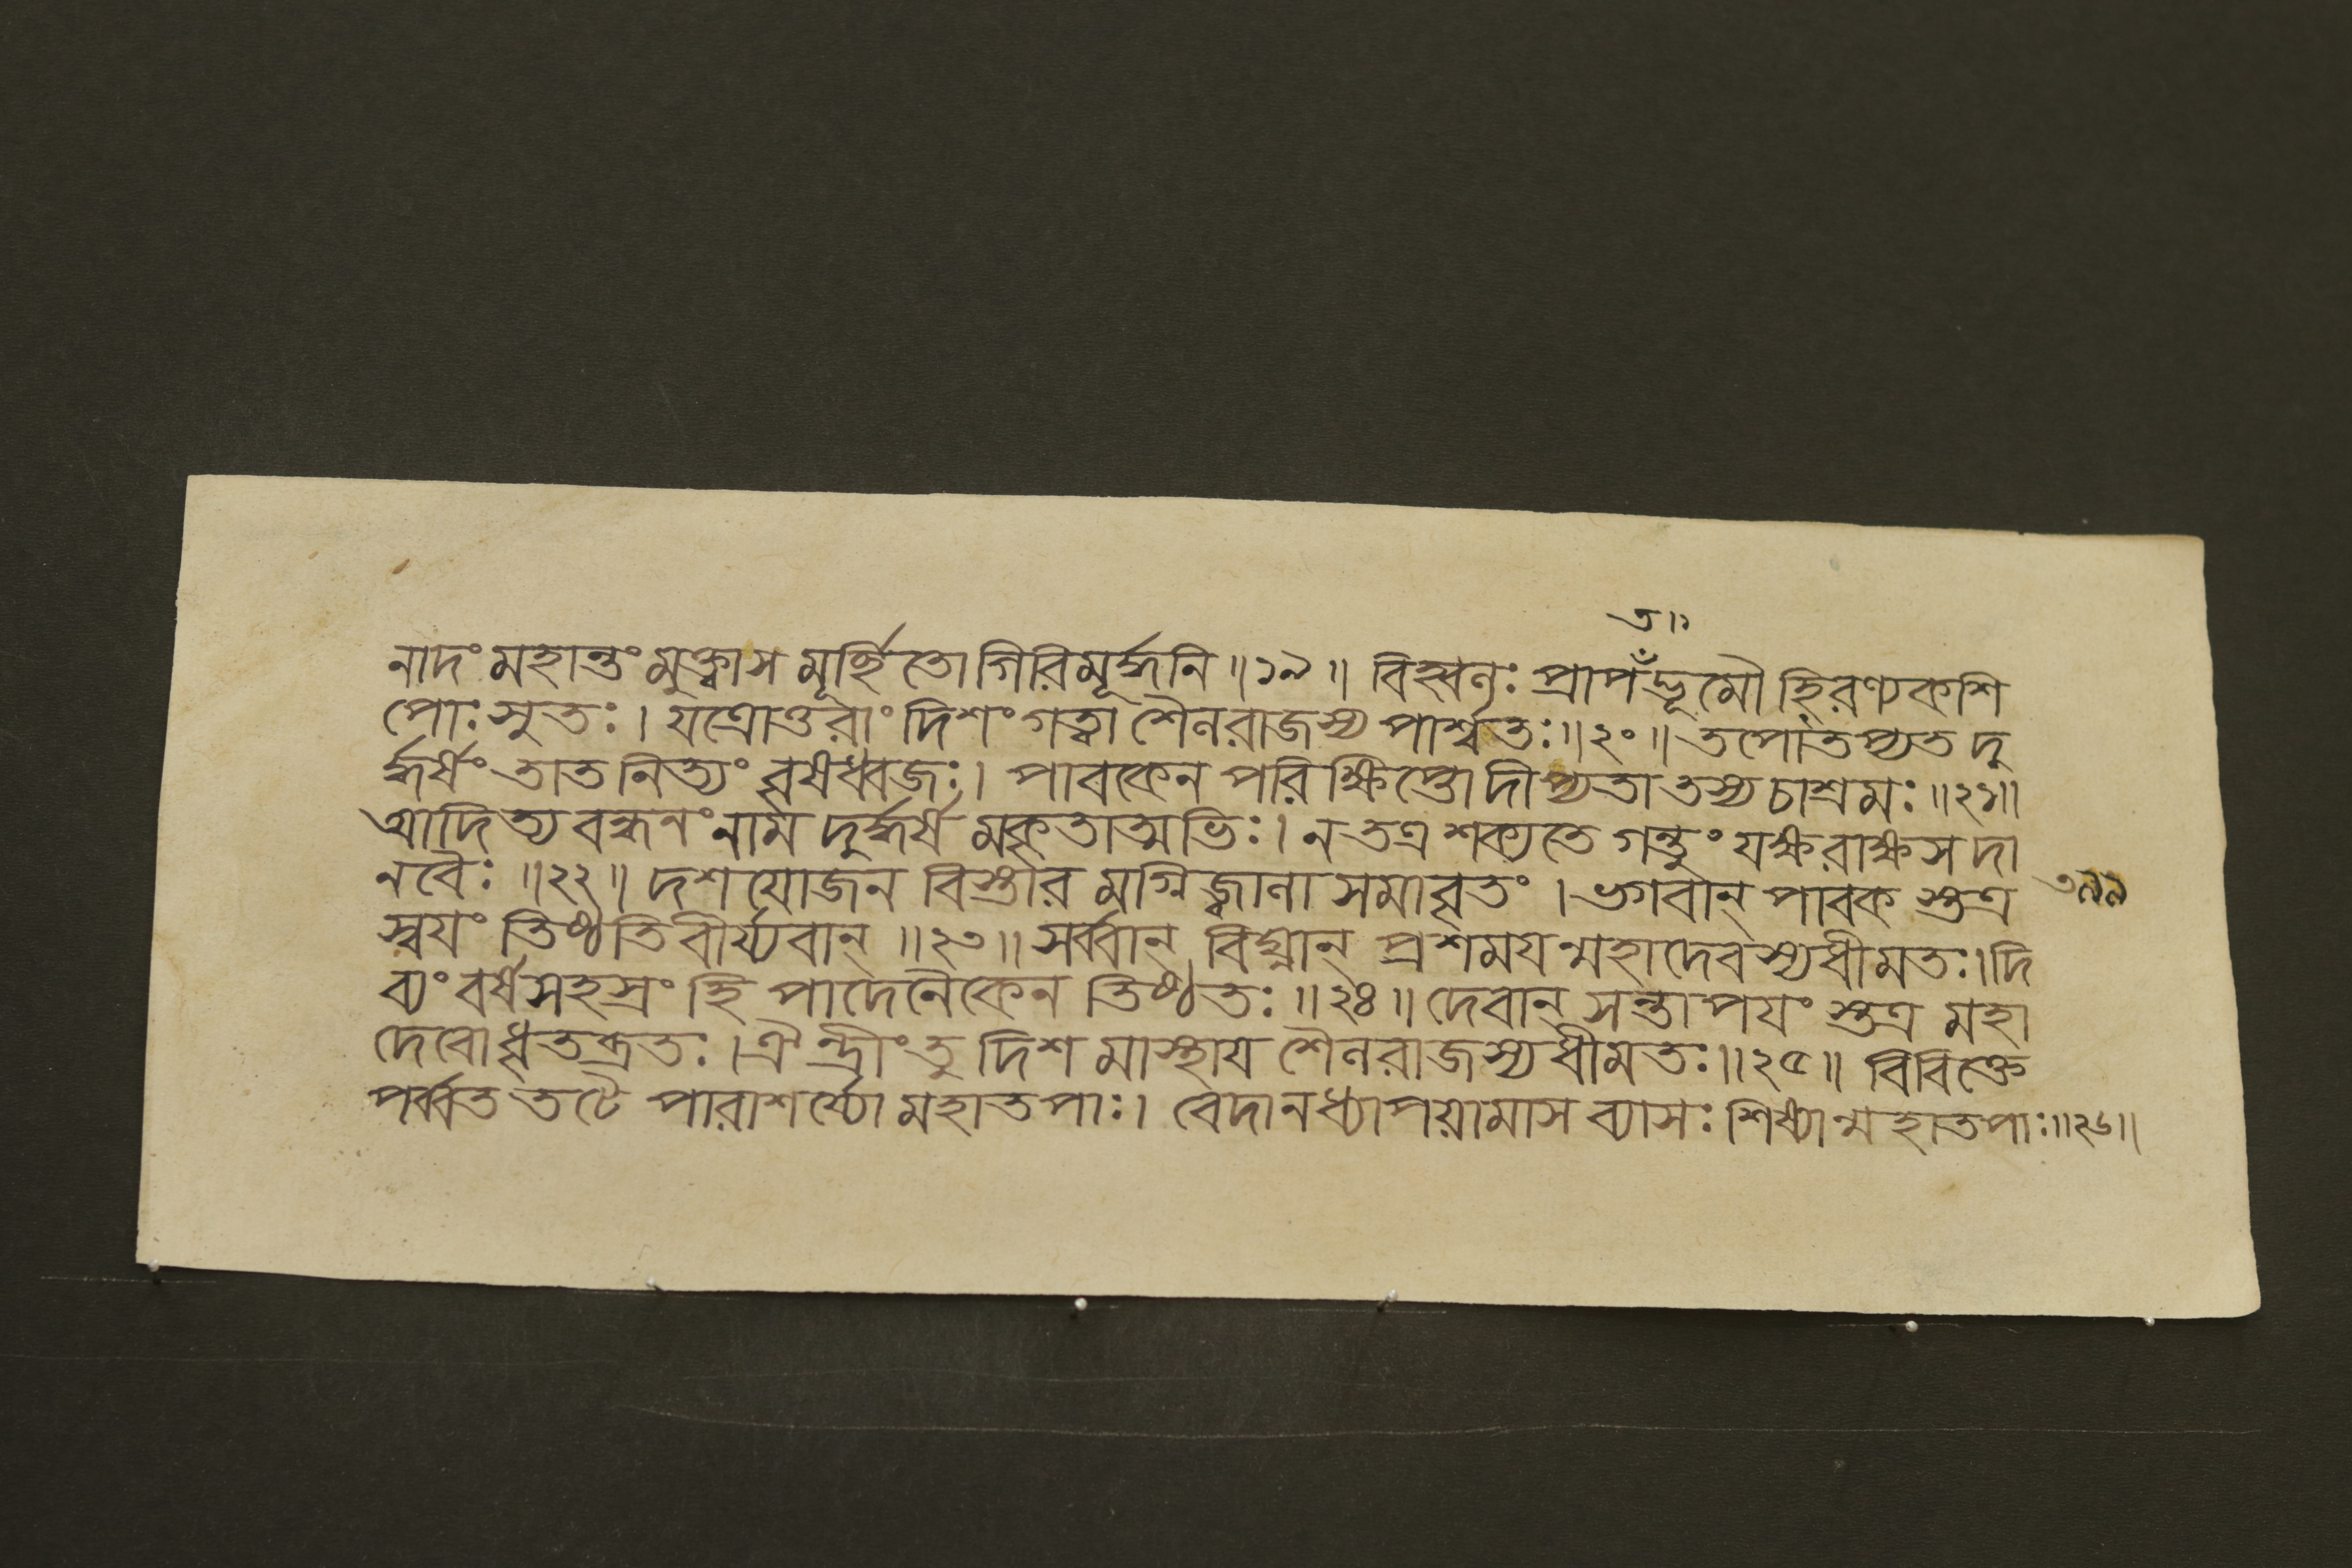 ত॥
নাদং মহান্তং মুক্ত্বাস মূর্চ্ছিতো গিরিমূর্দ্ধনি ॥১৯॥ বিহ্বলঃ প্রাপঁদ্ভূমৌ হিরণ্যকশি
পোঃ সুতঃ। যত্রোত্তরাং দিশং গত্বা শৈলরাজস্য পার্শ্বতঃ॥২০॥ তপোঁতপ্যত দু
র্দ্ধর্ষং তাত নিত্যং বৃষধ্বজঃ। পাবকেন পরিক্ষিপ্তো দীপ্যতা তস্য চাশ্রমঃ॥২১॥
আদিত্য বন্ধনং নাম দুর্দ্ধর্ষ মকৃতাত্মভিঃ। ন তত্র শক্যতে গন্তুং যক্ষরাক্ষস দা
নবৈঃ ॥২২॥ দশ যোজন বিস্তার মগ্নিজ্বালা সমাবৃতং। ভগবান্ পাবক স্তত্র
৩৭৯
স্বয়ং তিষ্ঠতি বীর্য্যবান্ ॥২৩॥ সর্ব্বান্ বিঘ্নান্ প্রশময়ন্মহাদেবস্য ধীমতঃ। দি
ব্যং বর্ষসহস্রং হি পাদেনৈকেন তিষ্ঠতঃ ॥২৪॥ দেবান্ সন্তাপয়ং স্তত্র মহা
দেবো ধৃতব্রতঃ। ঐন্দ্রীং তু দিশ মাস্থায় শৈলরাজস্য ধীমতঃ॥২৫॥ বিবিক্তে
পর্ব্বত তটে পারাশর্য্যো মহাতপাঃ। বেদানধ্যাপয়ামাস ব্যাসঃ শিষ্যান্মহাতপাঃ॥২৬॥